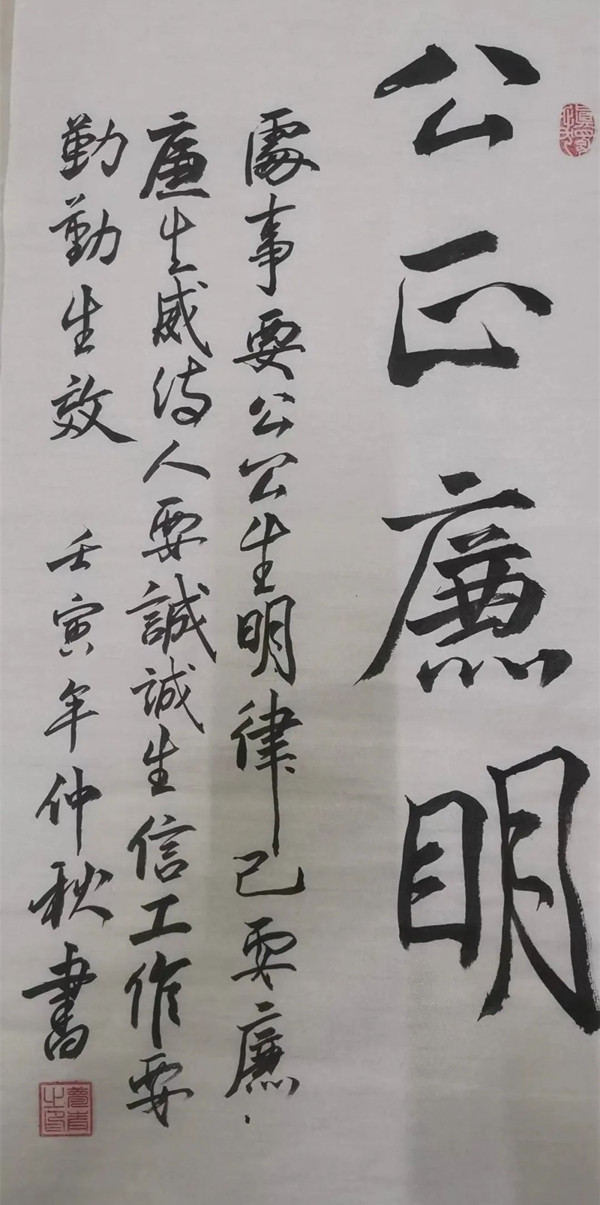 公正廉明
處事要公公生明律己要廉
廉生威待人要誠誠生信工作要
勤勤生效
壬寅年仲秋書